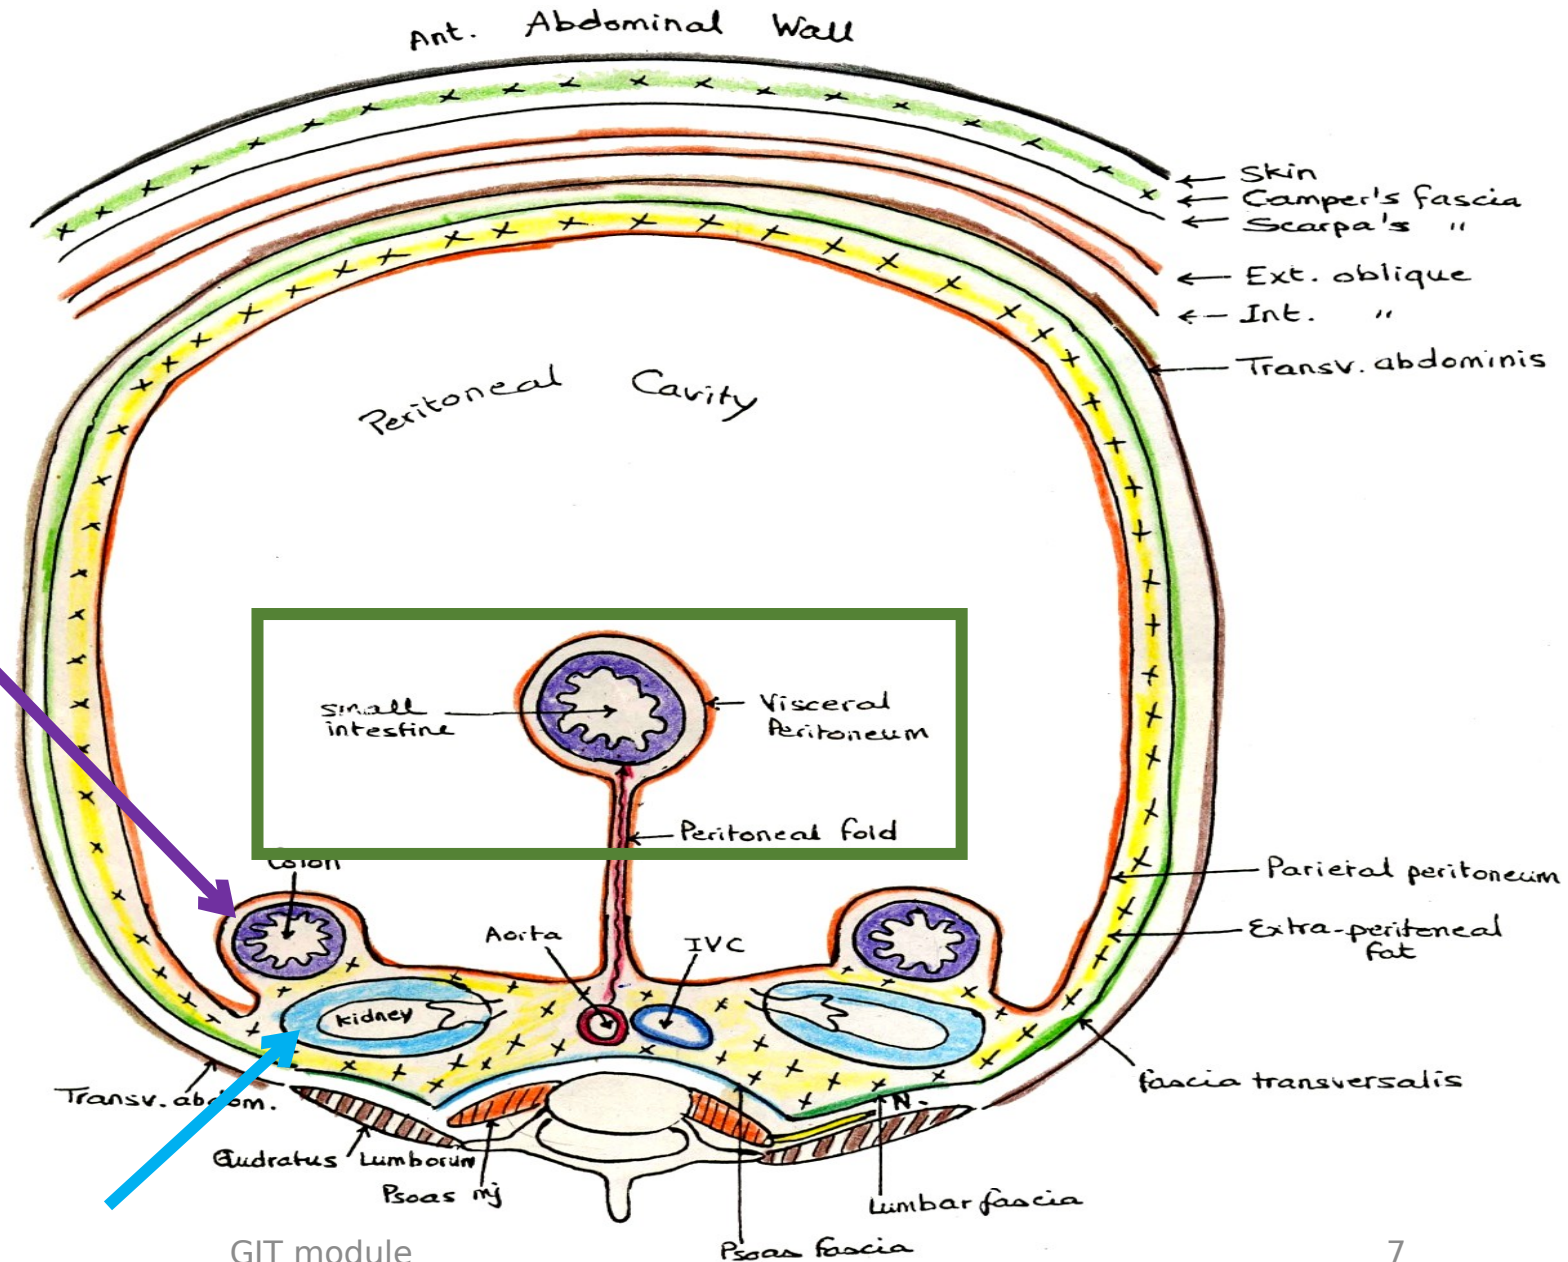 Ant. Abdominal Wall
Skin
Camper's fascia
Scarpa's "
Ext. oblique
Int. "
Transv. abdominis
Peritoneal Cavity
small
intestine
Visceral
Peritoneum
Peritoneal fold
Colon
Parietal peritoneum
Aorta
IVC
Extra-peritoneal
fat
kidney
fascia transversalis
Transv. abdom.
N.
Qudratus Lumborum
Psoas mj
Lumbar fascia
Psoas fascia
GIT module
7